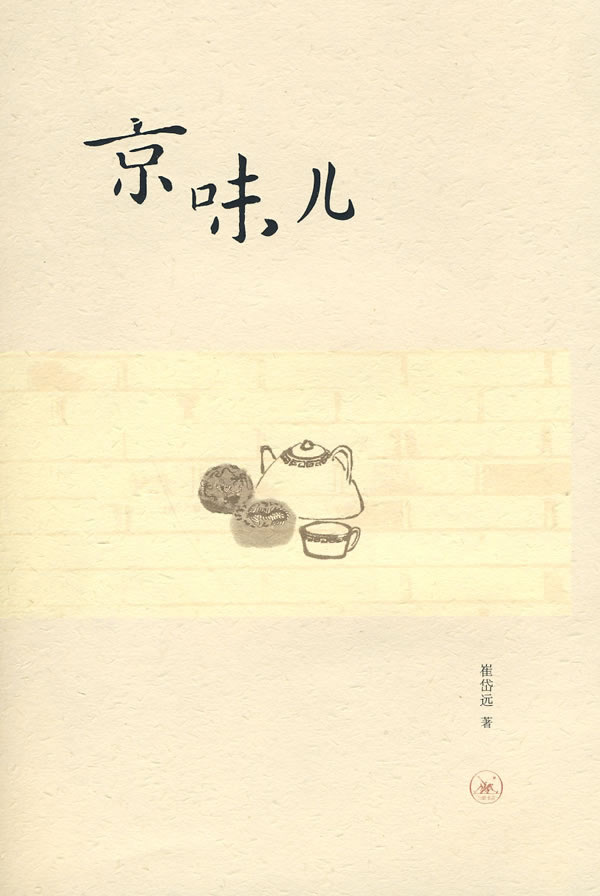 京味儿
崔岱远 著